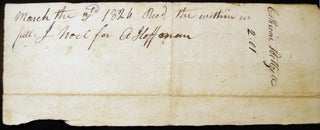 March the 2d 1826 Recd the within in
full J Noel for A Hoffman
Catherine
2.11